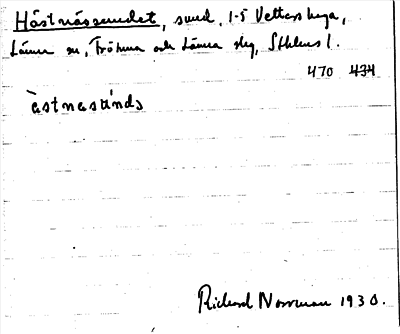 Hästnässundet, sund, 1-5 Vettershaga,
Länna sn, Frötuna och Länna slg, Sthlms l.
470 434
`æstnesúndə
Richard Norrman 1930.